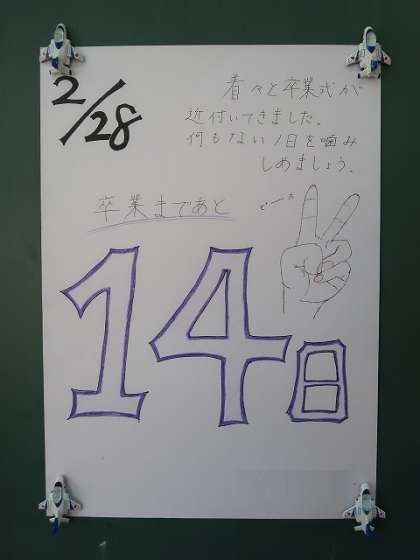 2/28
着々と卒業式が
近付いてきました。
何もない1日を噛み
しめましょう。
卒業まであと
ピース
14日